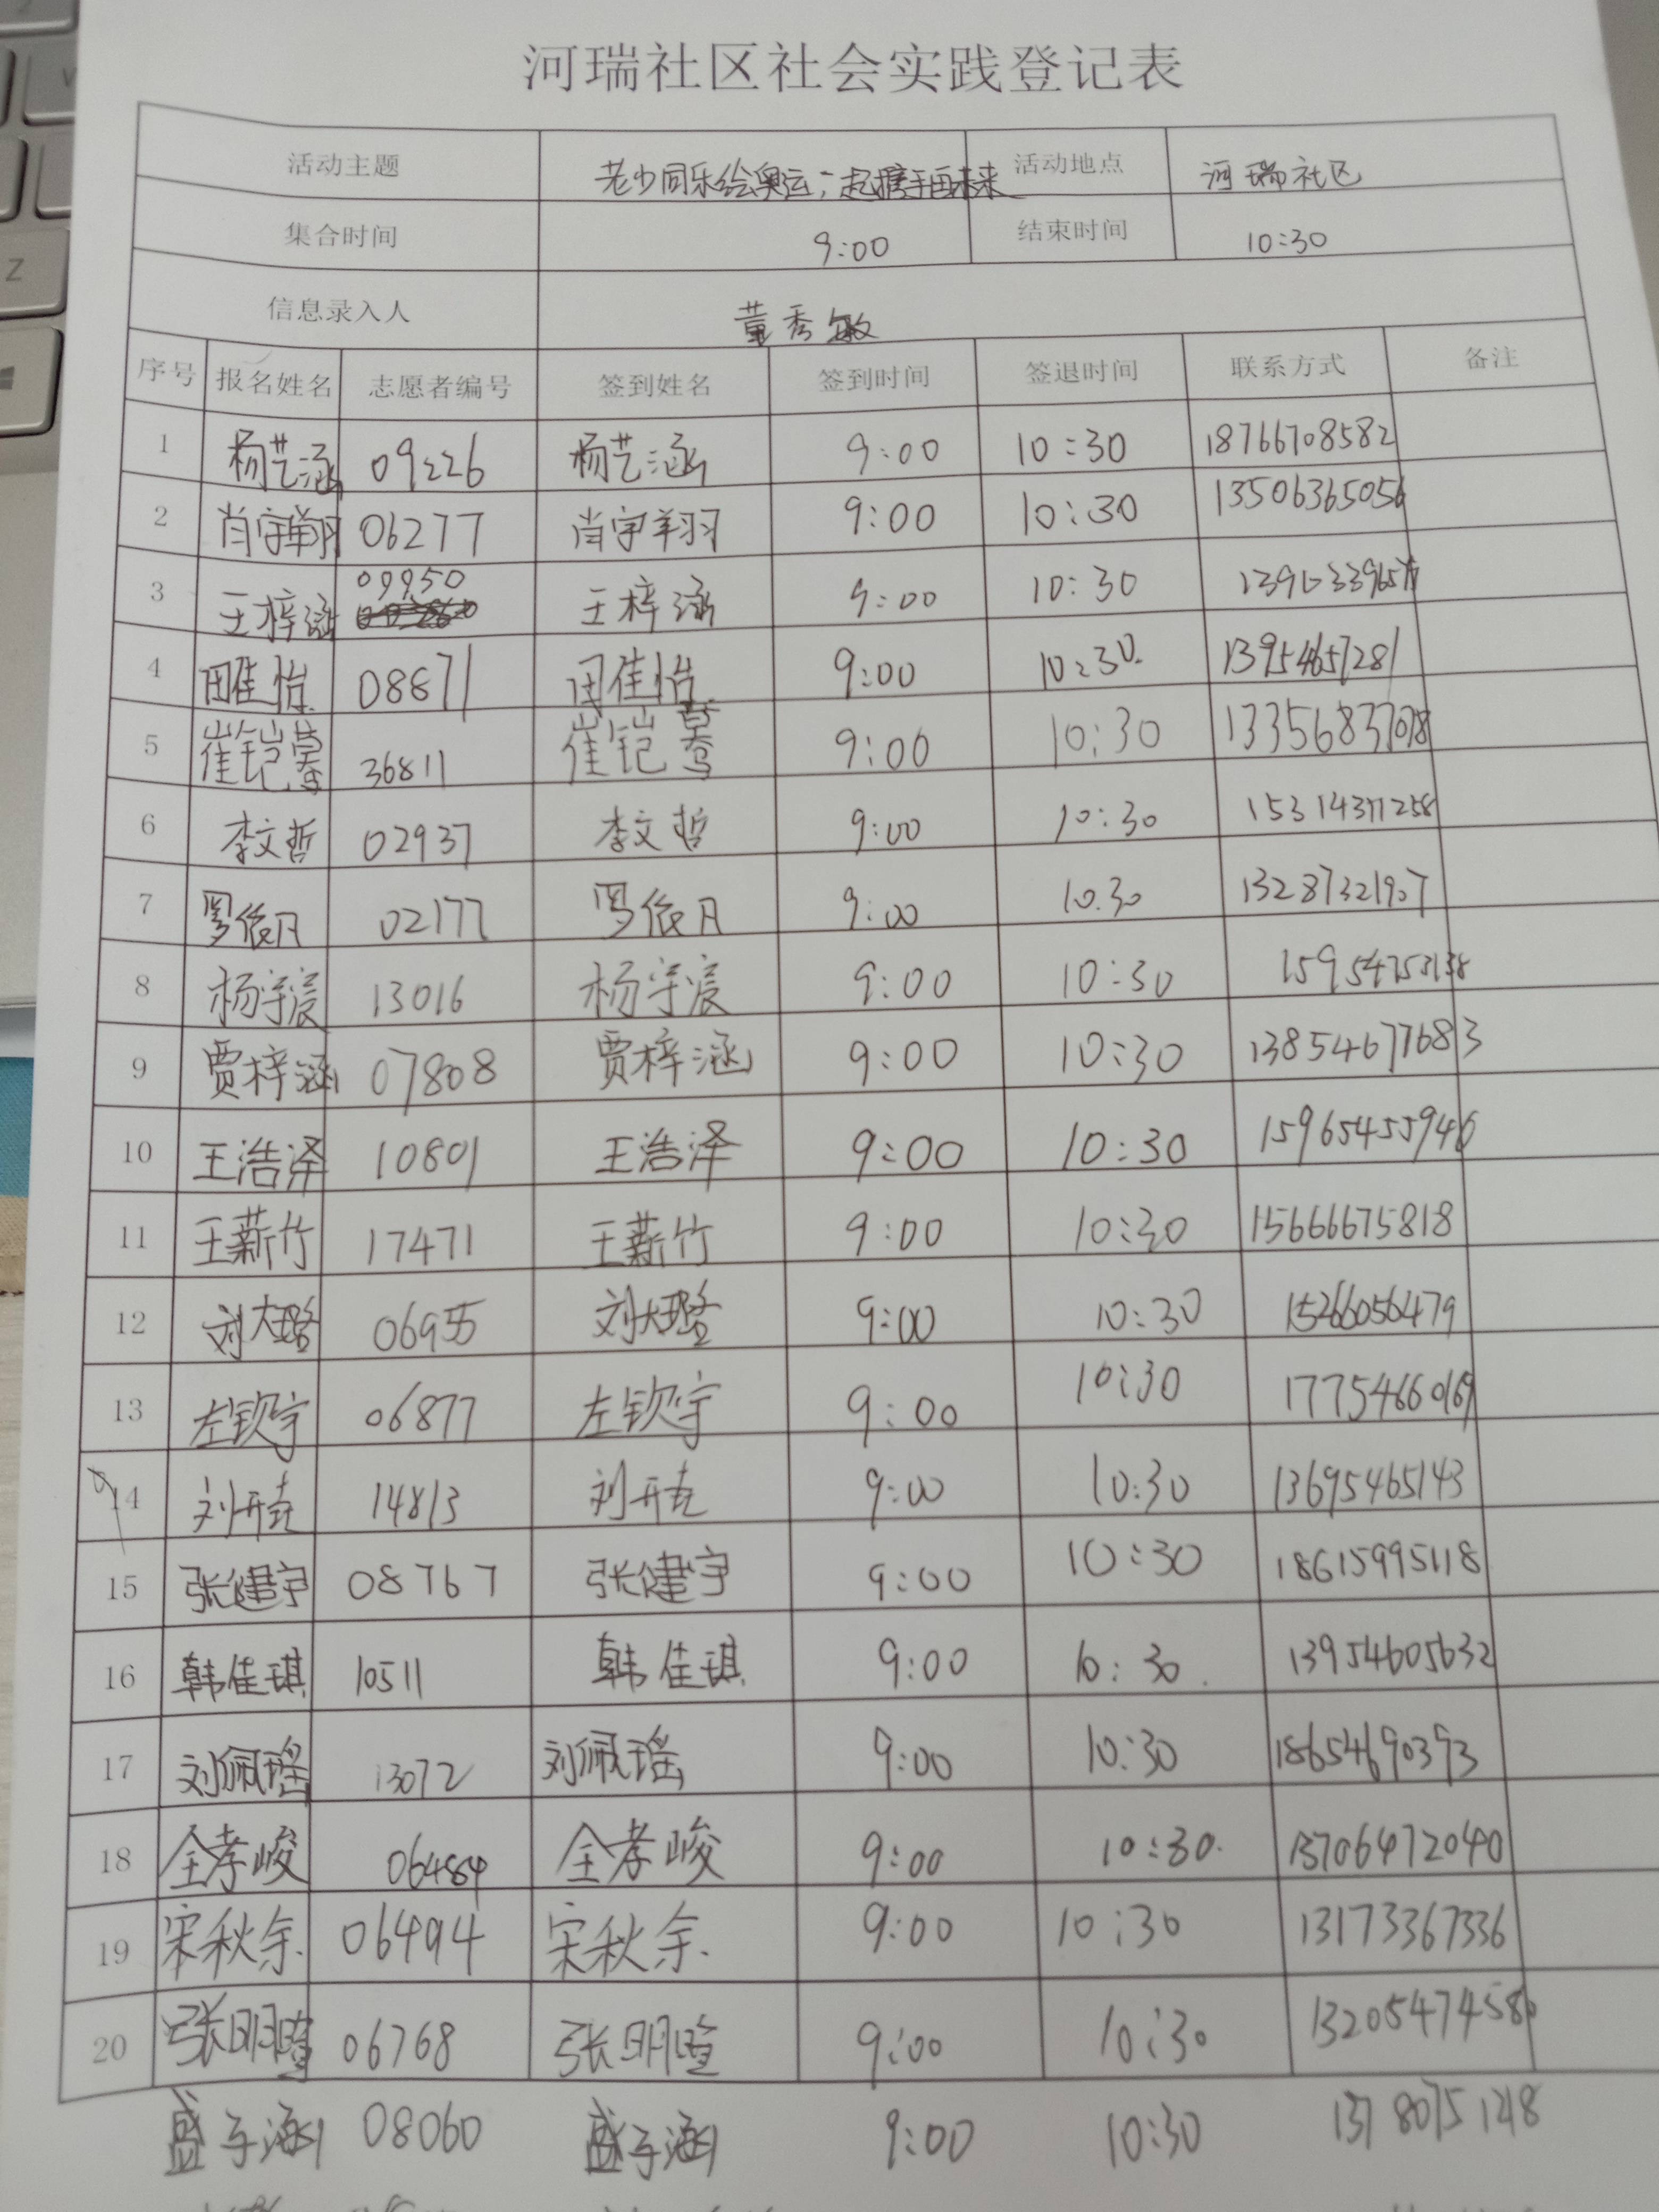 河瑞社区社会实践登记表
活动主题 老少同乐绘奥运,一起携手画未来 活动地点 河瑞社区
集合时间 9:00 结束时间 10:30
信息录入人 董秀敏
序号 报名姓名 志愿者编号 签到姓名 签到时间 签退时间 联系方式 备注
1 杨艺涵 09226 杨艺涵 9:00 10:30 18766708582
2 肖宇翔 06277 肖宇翔 9:00 10:30 13506365056
3 王梓涵 09950 王梓涵 9:00 10:30
4 田佳怡 08671 田佳怡 9:00 10:30 13954657281
5 崔铠骞 36811 崔铠骞 9:00 10:30 13356837078
6 李文哲 02937 李文哲 9:00 10:30 15314371258
7 罗俊月 02177 罗俊月 9:00 10:30 13287321907
8 杨宇宸 13016 杨宇宸 9:00 10:30 15954753138
9 贾梓涵 07808 贾梓涵 9:00 10:30 13854677683
10 王浩泽 10801 王浩泽 9:00 10:30 15965455946
11 王薪竹 17471 王薪竹 9:00 10:30 15666675818
12 刘大璐 06955 刘大璐 9:00 10:30 15266056479
13 左钦宇 06877 左钦宇 9:00 10:30 17754660169
14 刘开垚 14813 刘开垚 9:00 10:30 13695465143
15 张健宇 08767 张健宇 9:00 10:30 18615995118
16 韩佳琪 10511 韩佳琪 9:00 10:30 13954605632
17 刘佩瑶 13072 刘佩瑶 9:00 10:30 18654690393
18 全孝峻 06484 全孝峻 9:00 10:30 13706472040
19 宋秋余 06494 宋秋余 9:00 10:30 13173367336
20 张明暄 06768 张明暄 9:00 10:30 13205474586
盛子涵 08060 盛子涵 9:00 10:30 13780751218